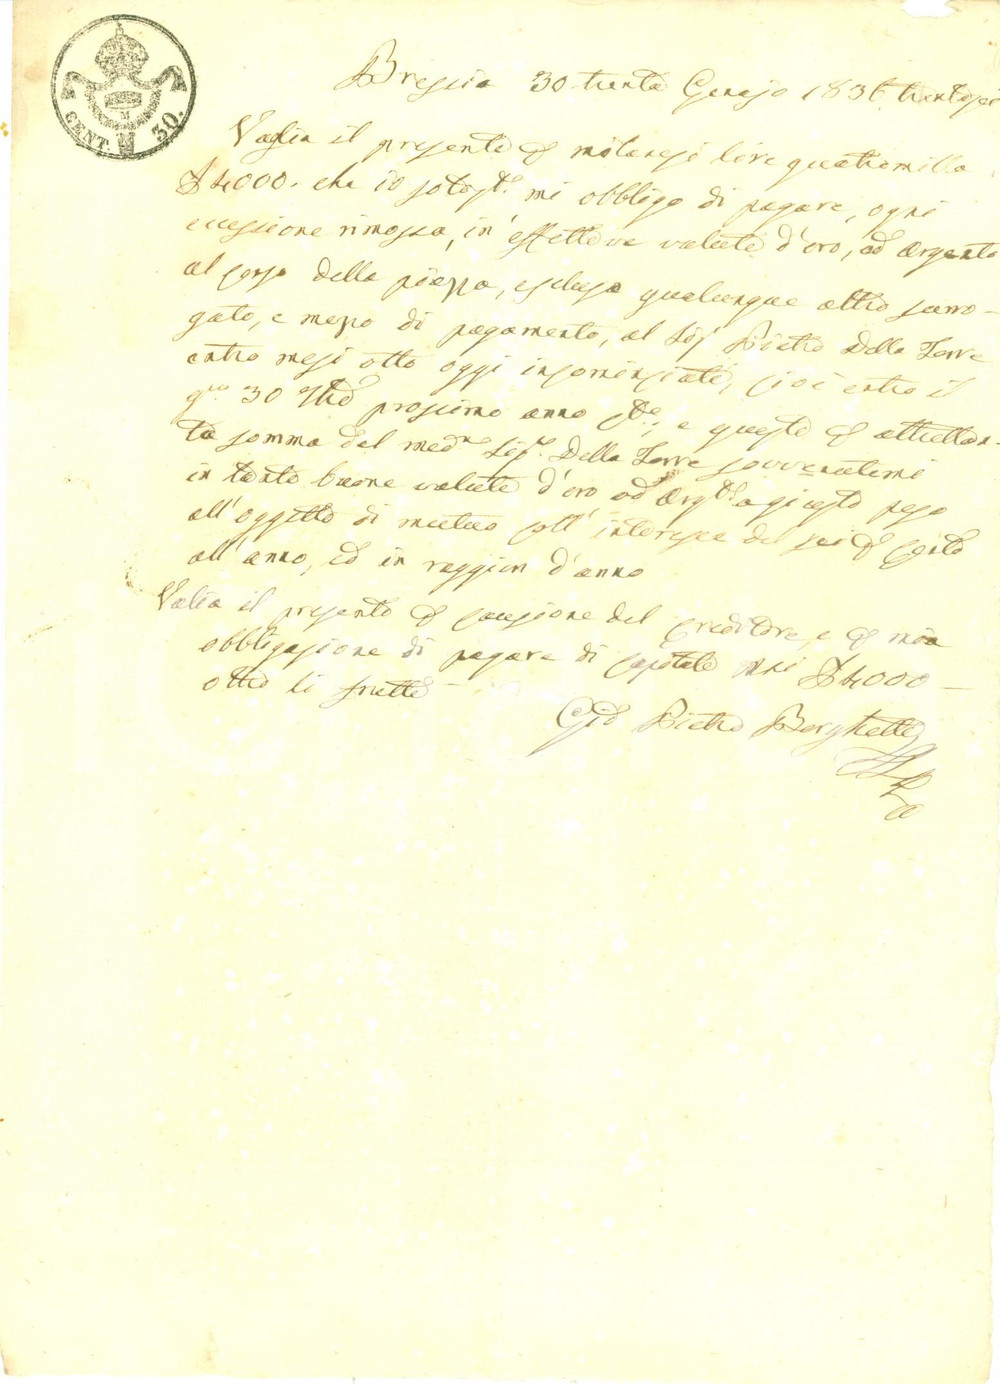 CENT. 30.
Brescia 30 trenta Genajo 1836 trentasei
Vaglia il presente di milanesi lire quattromilla
£ 4000. che io sotos.to mi obbligo di pagare, ogni
eccessione rimossa, in effettiva valute d'oro, od Argento
al corso della piazza, esclusa qualunque altro surro-
gato, e mezzo di pagamento, al Sig.r Pietro Della Torre
entro mesi otto oggi incominciati, cioè entro il
g.no 30 7bre prossimo anno, e questo per altrettan-
ta somma del med.mo Sig.r Della Torre sovvenutami
in tante buone valute d'oro od Arg.to a giusto peso
all'oggetto di mutuo coll' interesse del sei per cento
all'anno, ed in raggion d'anno
Valia il presente per cauzione del creditore, e per mia
obbligazione di pagare di capitale £ 4000 –
oltre li frutti –
Gio Pietro Borghetti